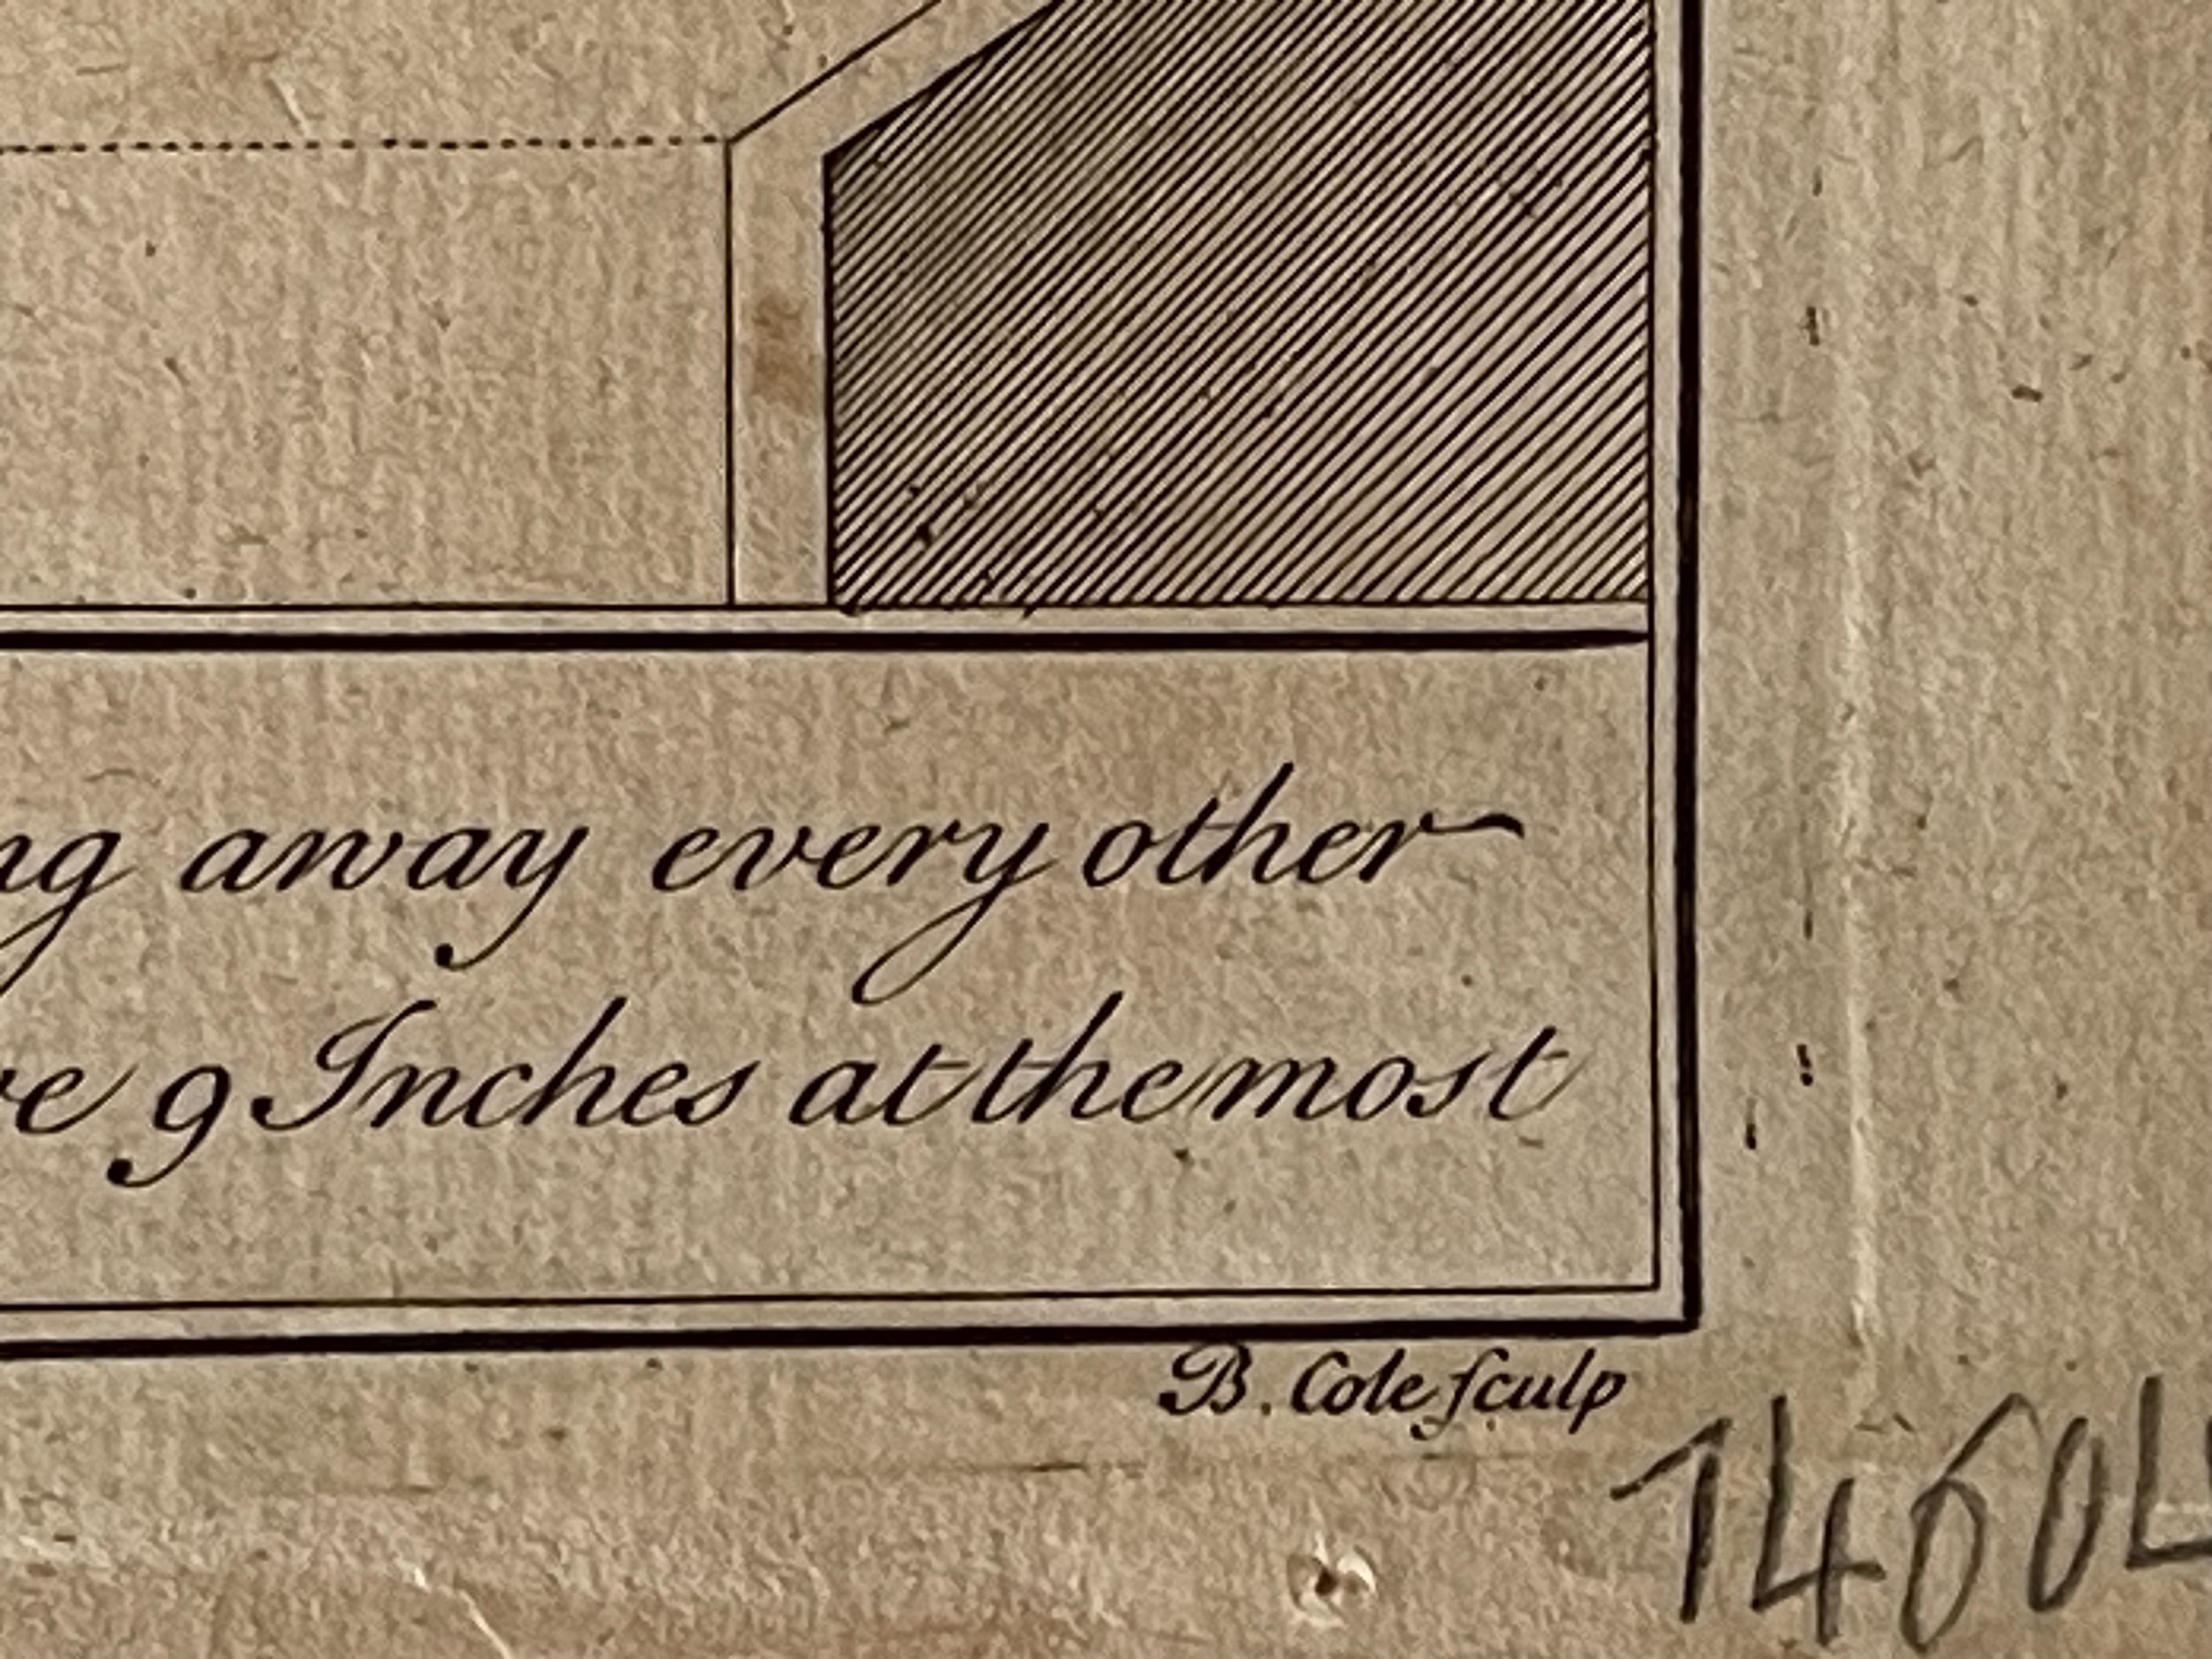 ng away every other
re 9 Inches at the most
B. Cole ſculp
14604